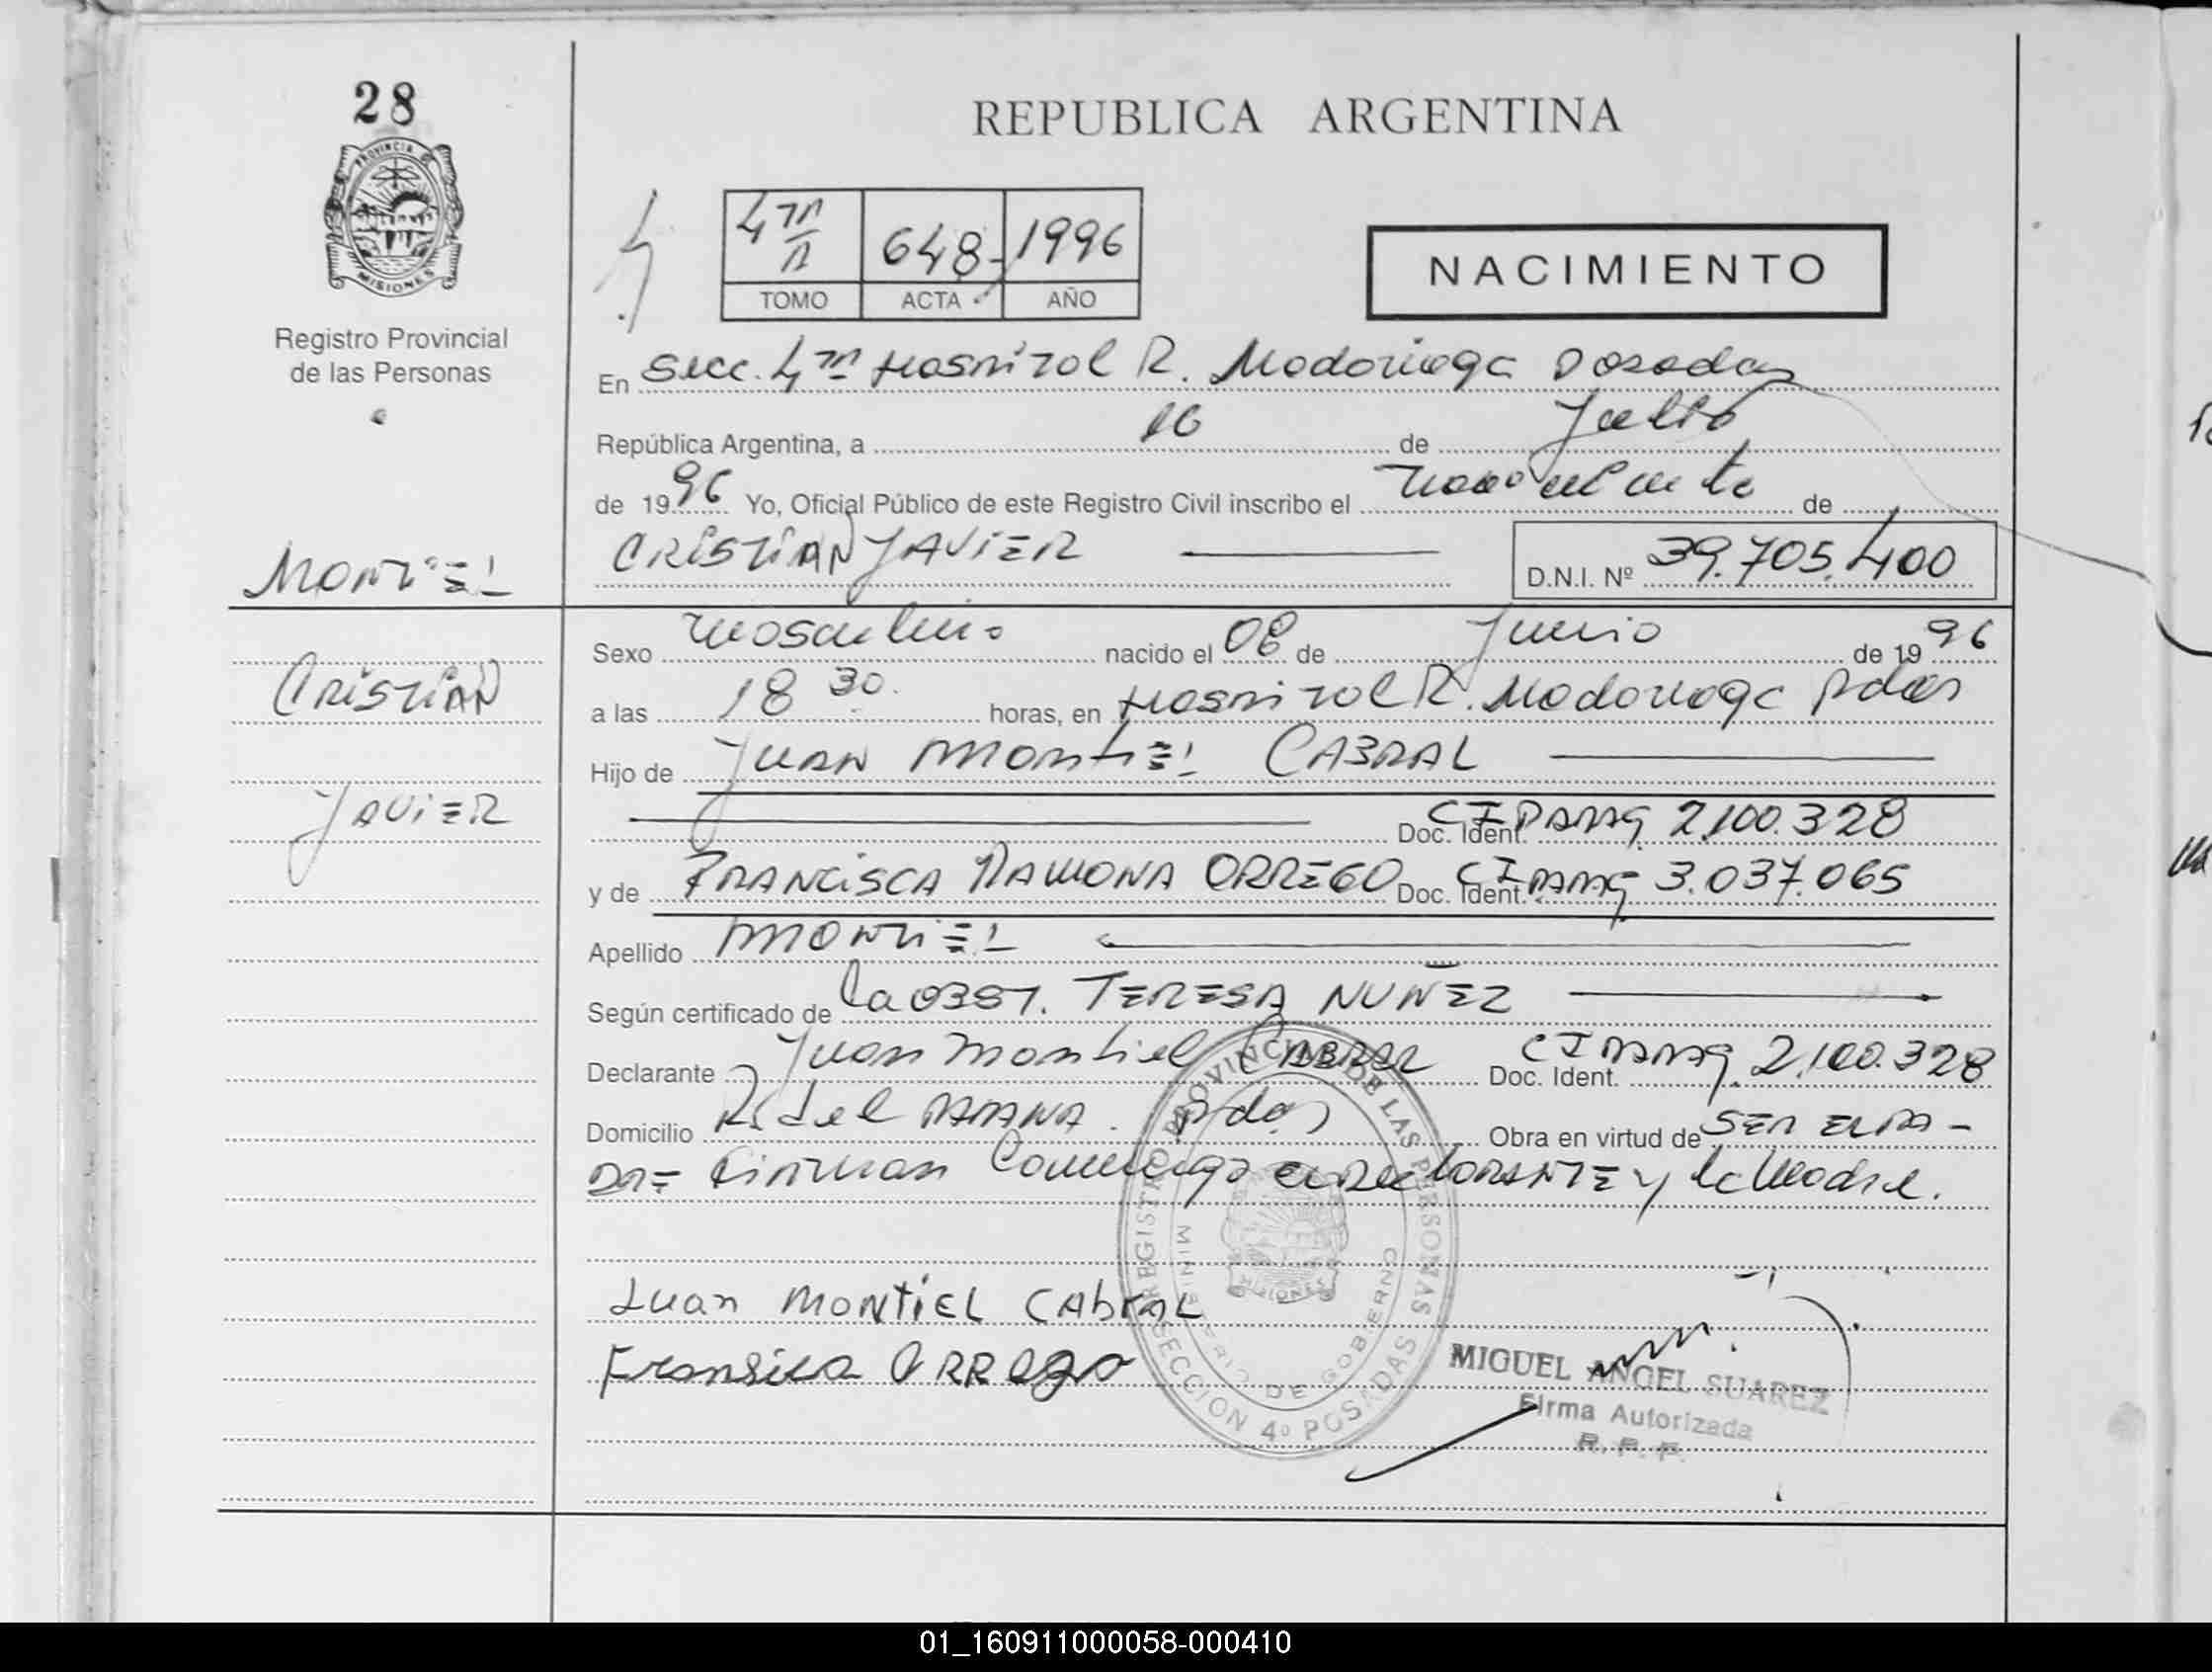 28
REPUBLICA ARGENTINA
PROVINCIA DE
MISIONES
Registro Provincial
de las Personas
648 1996
TOMO ACTA AÑO
NACIMIENTO
En Secc. 4ta Hospital R. Madariaga Posadas
República Argentina, a 16 de Julio
de 1996 Yo, Oficial Público de este Registro Civil inscribo el nacimiento de
CRISTIAN JAVIER
D.N.I. Nº 39.705.400
MONTIEL
CRISTIAN
JAVIER
Sexo masculino nacido el 08 de Junio de 1996
a las 18 30 horas, en Hospital R. Madariaga Pdas
Hijo de JUAN MONTIEL CABRAL
Doc. Ident. CI PARAG 2.100.328
y de FRANCISCA RAMONA ORREGO Doc. Ident. CI PARAG 3.037.065
Apellido MONTIEL
Según certificado de la OBST. TERESA NUÑEZ
Declarante Juan Montiel CABRAL Doc. Ident. CI PARAG 2.100.328
Domicilio Pdas Obra en virtud de SER EL PA-
DRE Firman Conmigo el DecLARANTE y la Madre.
Juan MONTIEL CAbRAL
Fransica ORREgo
REGISTRO PROVINCIAL DE LAS PERSONAS
MINISTERIO DE GOBIERNO
MISIONES
SECCION 4º POSADAS
MIGUEL ANGEL SUAREZ
Firma Autorizada
R. P. P.
01_160911000058-000410